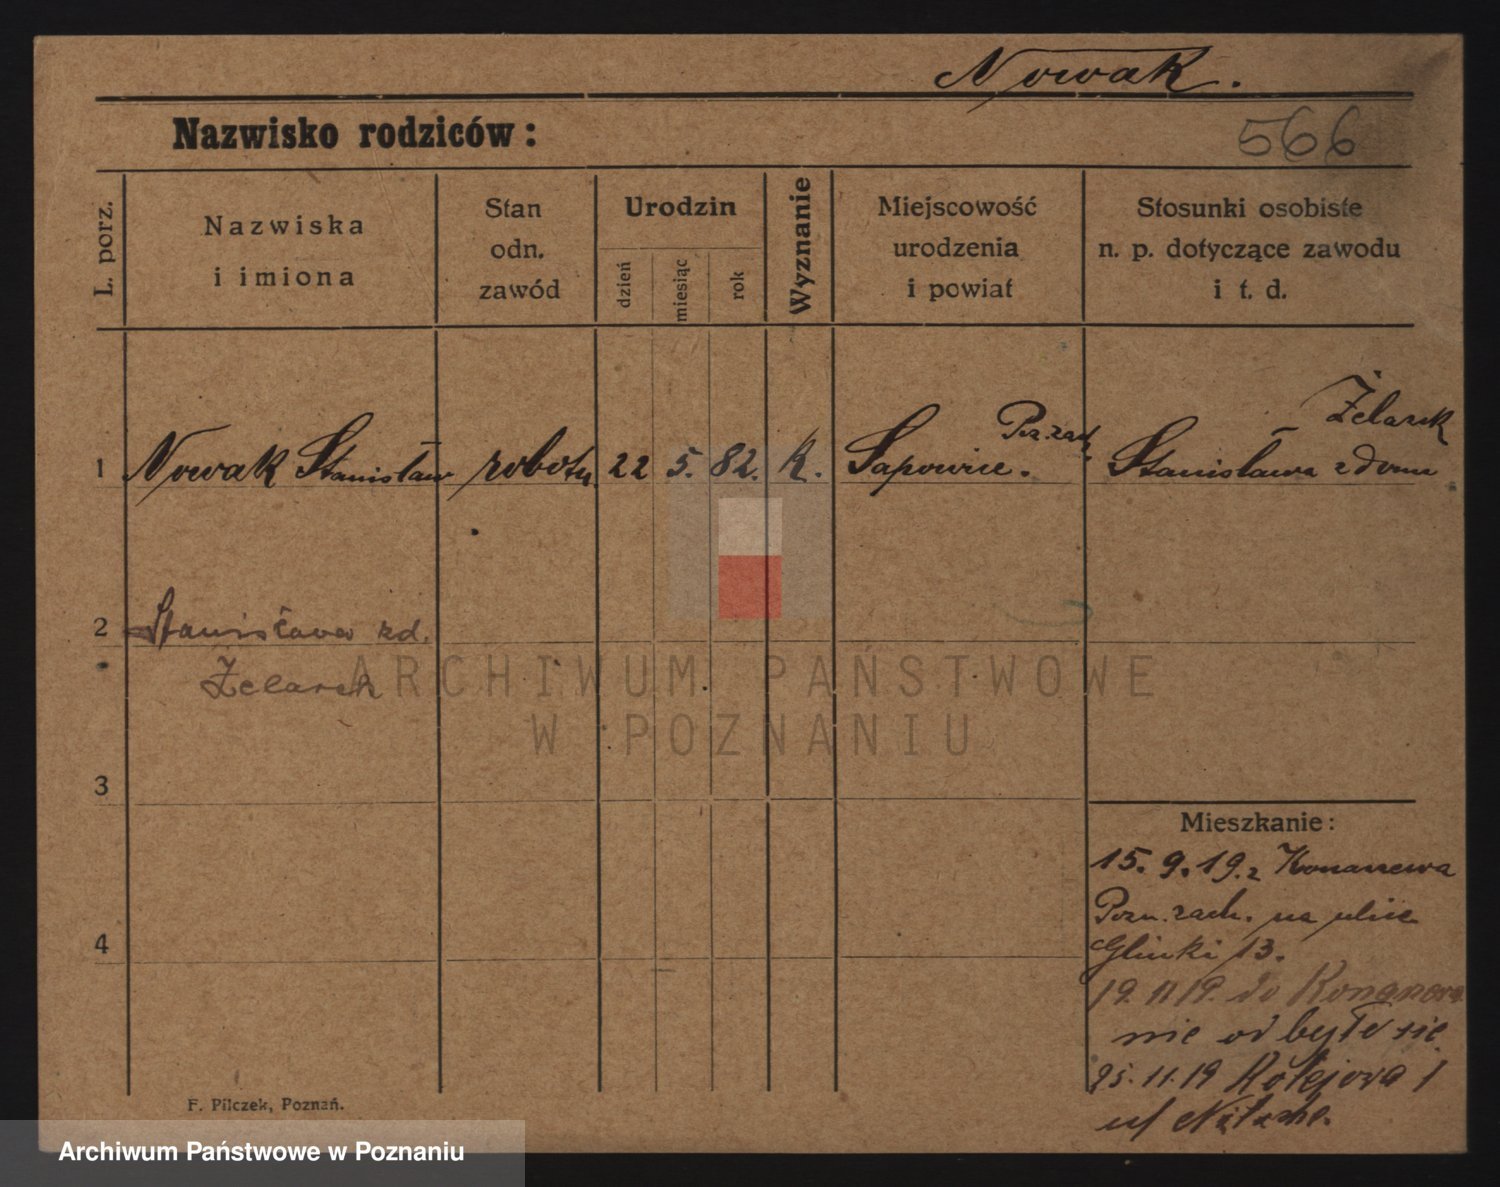 Nowak.
Nazwisko rodziców:
566
L. porz.
Nazwiska
i imiona
Stan
odn.
zawód
Urodzin
dzień
miesiąc
rok
Wyznanie
Miejscowość
urodzenia
i powiat
Stosunki osobiste
n. p. dotyczące zawodu
i t. d.
1 Nowak Stanisław robotn. 22 5. 82. k. Sapowice. Poz. zach. Stanisława z domu
Żelarek
2 Stanisława zd.
Żelarek
3
4
Mieszkanie:
15. 9. 19. z Konarzewa
Pozn. zach. na ulice
Glinki 13.
19. 11 19. do Konarzewa
nie odbyło się
25. 11. 19 Kolejowa 1
u/
F. Pilczek, Poznań.
ARCHIWUM PAŃSTWOWE
W POZNANIU
Archiwum Państwowe w Poznaniu